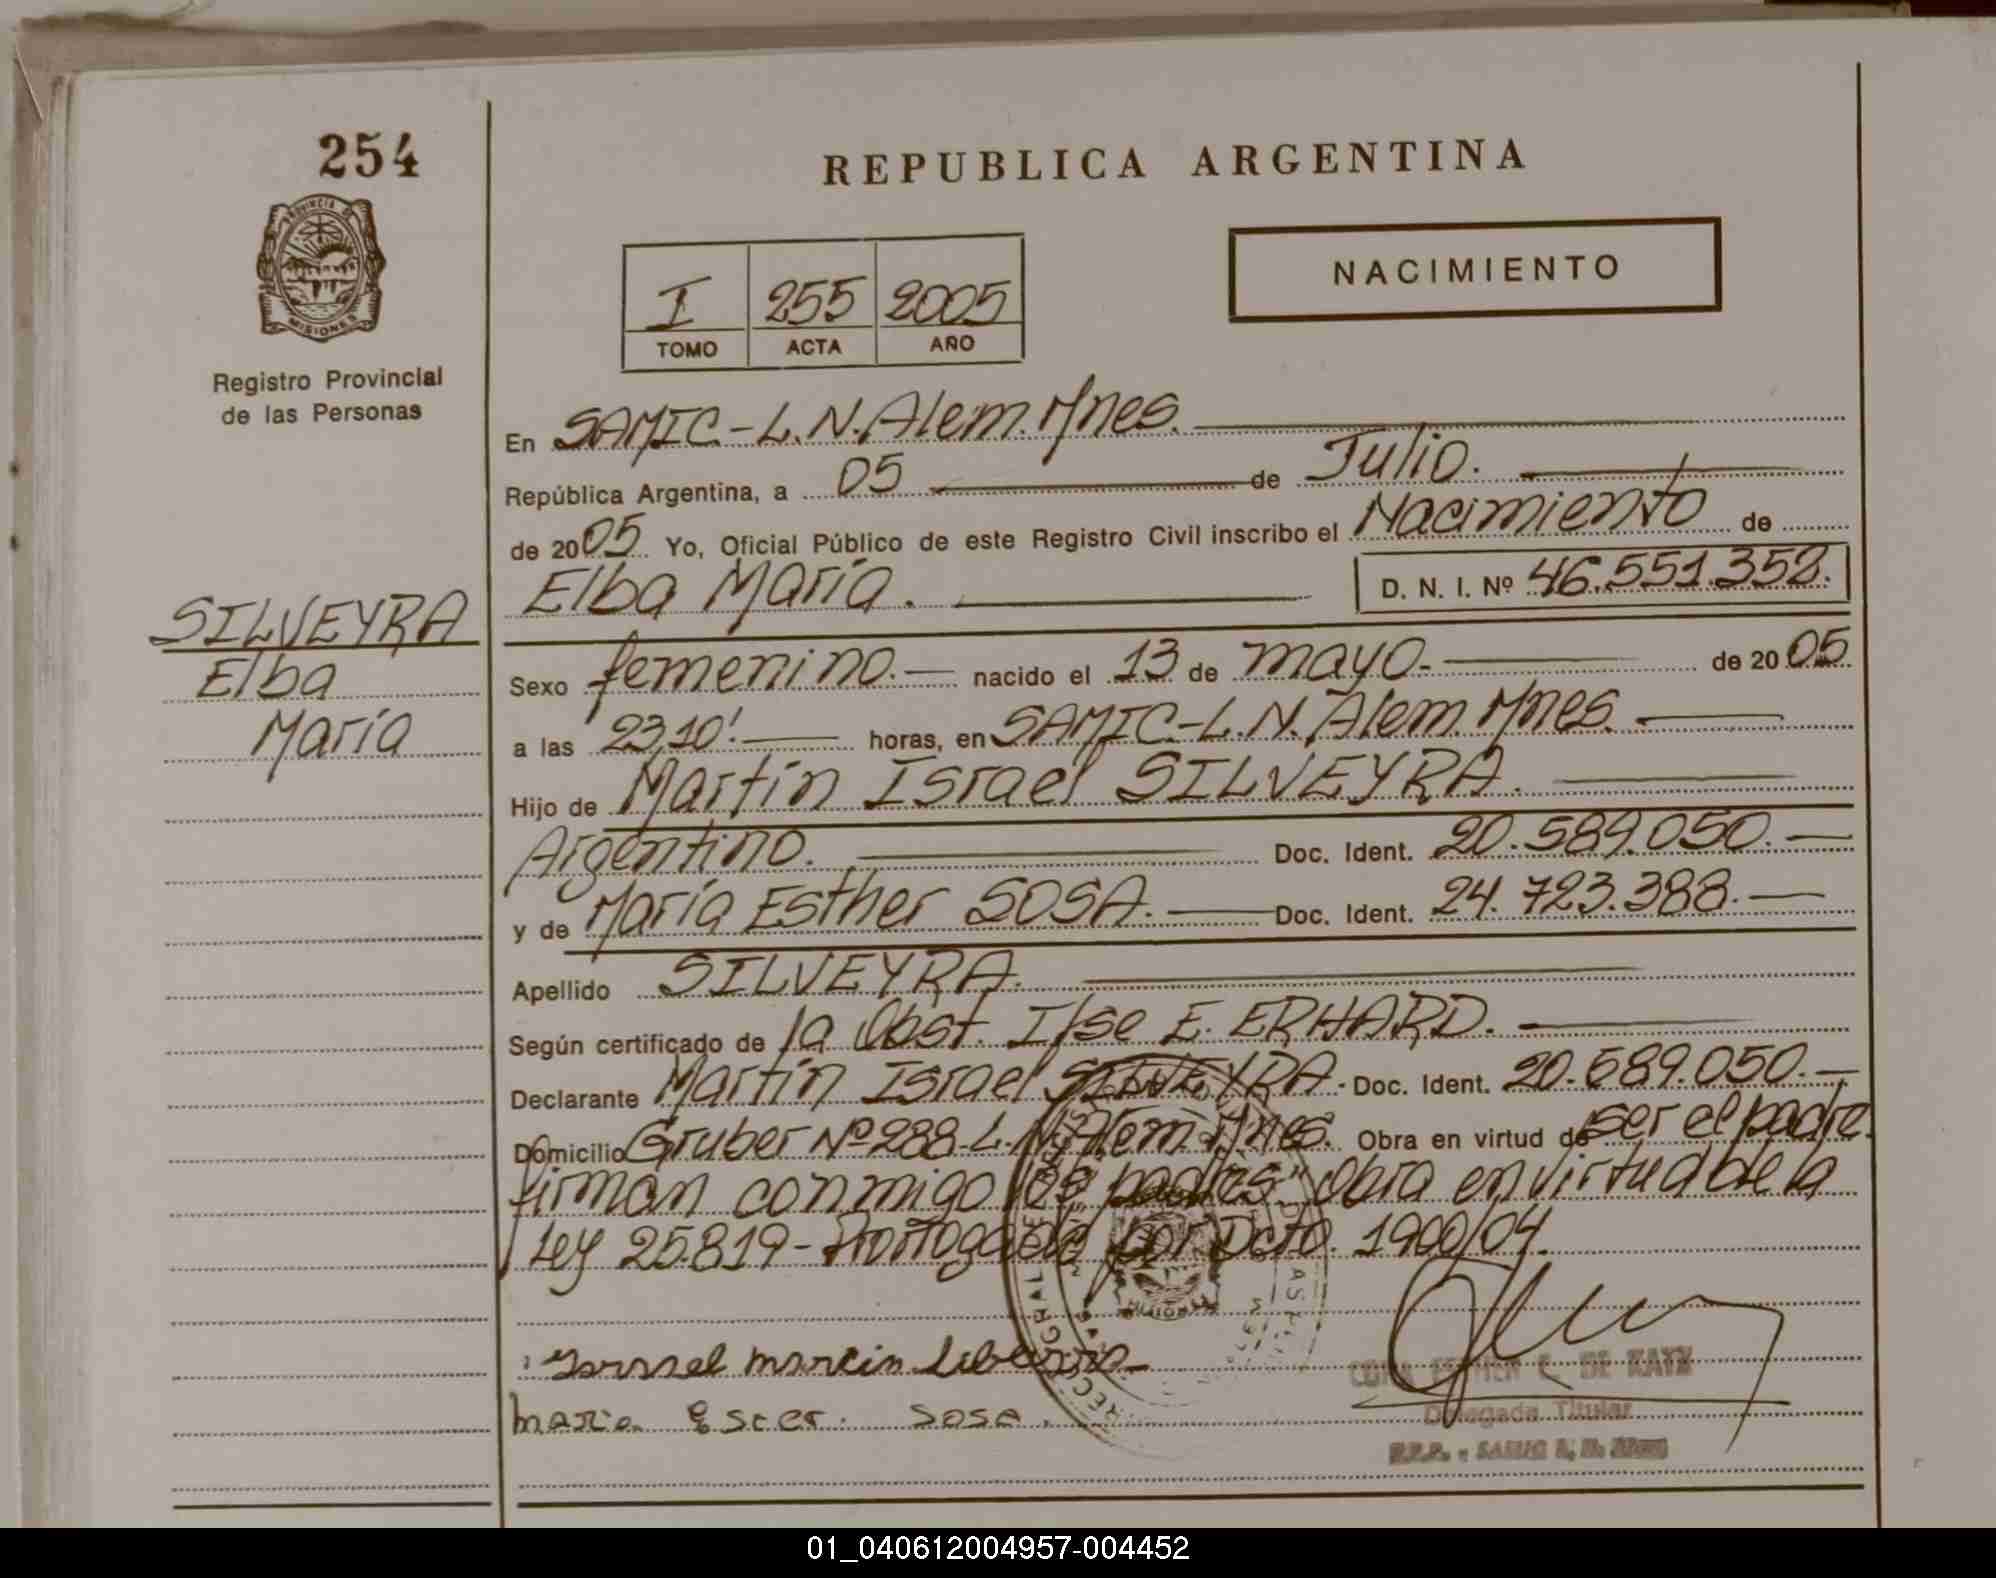 254
PROVINCIA DE
MISIONES
Registro Provincial
de las Personas
SILVEYRA
Elba
María
REPUBLICA ARGENTINA
I 255 2005
TOMO ACTA AÑO
NACIMIENTO
En SAMIC-L.N.Alem.Mnes.
República Argentina, a 05 de Julio.
de 2005. Yo, Oficial Público de este Registro Civil inscribo el Nacimiento de
Elba María. D. N. I. Nº 46.551.352.
Sexo femenino.- nacido el 13 de mayo.- de 2005
a las 23,10'. horas, en SAMIC-L.N.Alem.Mnes.
Hijo de Martín Israel SILVEYRA.
Argentino. Doc. Ident. 20.589.050.-
y de María Esther SOSA. Doc. Ident. 24.723.388.-
Apellido SILVEYRA.
Según certificado de la Obst. Ilse E. ERHARD.
Declarante Martín Israel SILVEYRA. Doc. Ident. 20.689.050.-
Domicilio Gruber Nº 288-L.N.Alem.Mnes. Obra en virtud de ser el padre.
firman conmigo los padres" Obra en virtud de la
Ley 25.819- Prorrogada por Dcto. 1900/04.
MISIONES
martin
maria Ester. Sosa.
DE KATZ
Delegada Titular
01_040612004957-004452